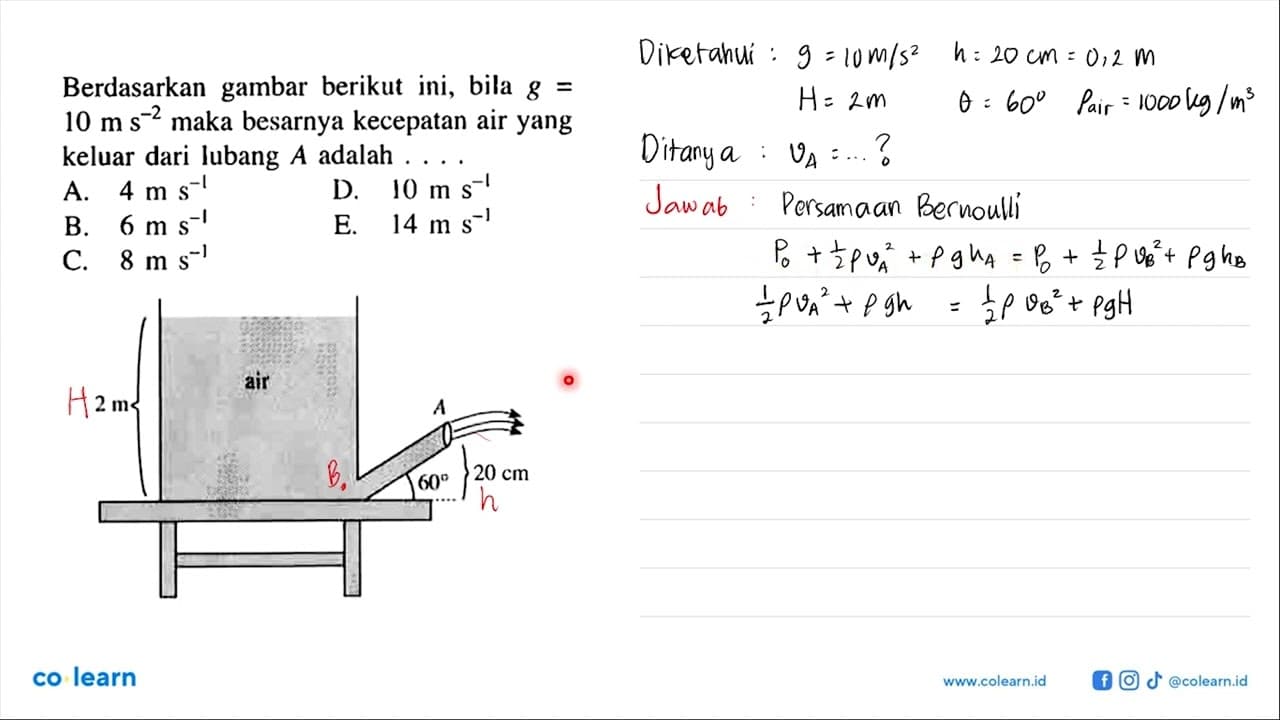 Berdasarkan gambar berikut ini, bila g =
10 m s⁻² maka besarnya kecepatan air yang
keluar dari lubang A adalah . . . .
A. 4 m s⁻¹ D. 10 m s⁻¹
B. 6 m s⁻¹ E. 14 m s⁻¹
C. 8 m s⁻¹
air
H 2 m
A
B
60°
20 cm
h
Diketahui : g = 10 m/s² h = 20 cm = 0,2 m
H = 2m θ = 60° ρair = 1000 kg/m³
Ditanya : υA = ... ?
Jawab : Persamaan Bernoulli
P₀ + ½ρυA² + ρghA = P₀ + ½ρυB² + ρghB
½ρυA² + ρgh = ½ρυB² + ρgH
co·learn
www.colearn.id
@colearn.id